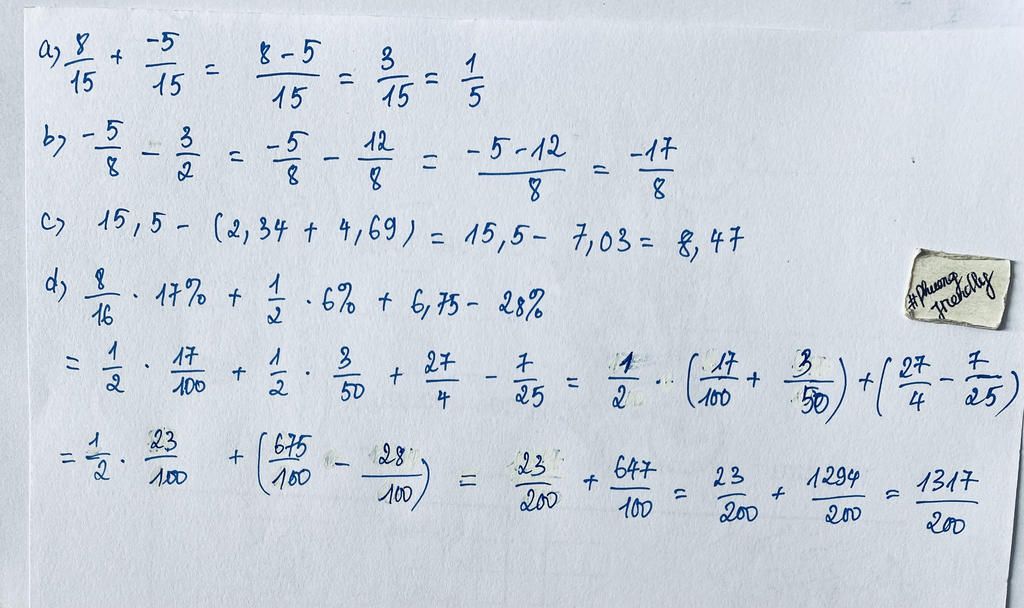 a) 8/15 + -5/15 = 8-5/15 = 3/15 = 1/5
b) -5/8 - 3/2 = -5/8 - 12/8 = -5-12/8 = -17/8
c) 15,5 - (2,34 + 4,69) = 15,5 - 7,03 = 8,47
d) 8/16 . 17% + 1/2 . 6% + 6,75 - 28%
= 1/2 . 17/100 + 1/2 . 3/50 + 27/4 - 7/25 = 1/2 . (17/100 + 3/50) + (27/4 - 7/25)
= 1/2 . 23/100 + (675/100 - 28/100) = 23/200 + 647/100 = 23/200 + 1294/200 = 1317/200
#phuong
friendly